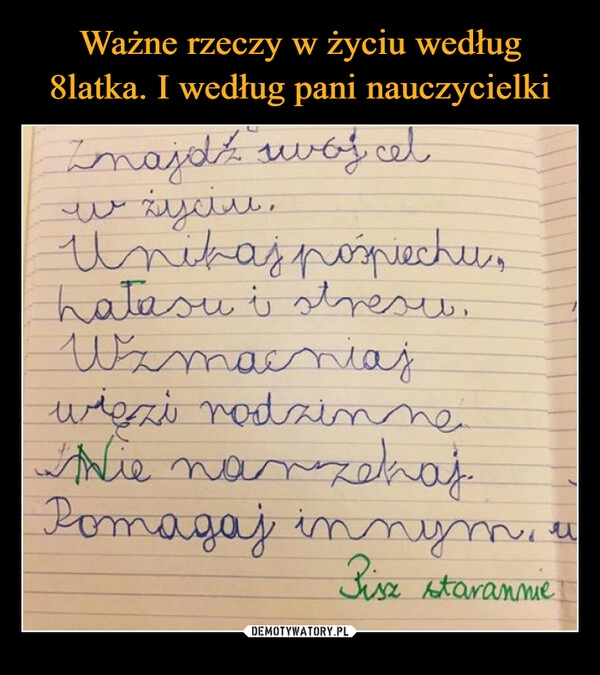 Ważne rzeczy w życiu według
8latka. I według pani nauczycielki
Znajdź swój cel
w życiu.
Unikaj pośpiechu,
hałasu i stresu.
Wzmacniaj
więzi rodzinne.
Nie narzekaj.
Pomagaj innym.
Pisz starannie
DEMOTYWATORY.PL